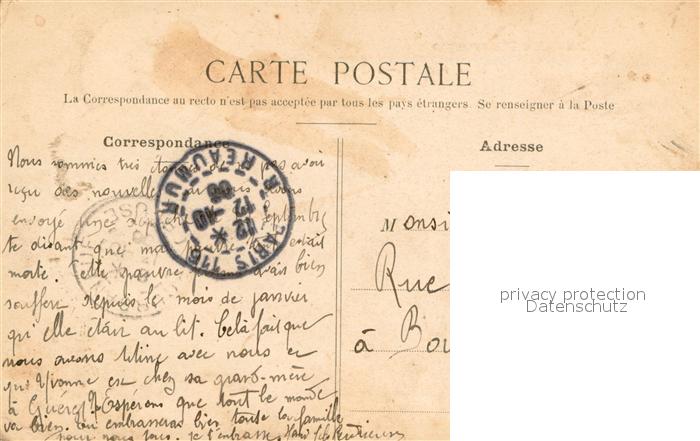 CARTE POSTALE
La Correspondance au recto n'est pas acceptée par tous les pays étrangers. Se renseigner à la Poste
Correspondance
Adresse
Nous sommes très pas avoir
reçu des nouvelles
envoyé une Septembre
te disant que ma était
morte. Cette pauvre avait bien
souffert depuis le mois de janvier
qu'elle était au lit. Celà fait que
nous avons avec nous et
que Yvonne est chez sa grand-mère
à Guéret. Espérons que tout le monde
va bien. embrasseras bien toute la famille
pour nous tous. je t'embrasse
PARIS 118
R. REAUMUR
12
12 -10
08
Monsi
Rue
à Bou
privacy protection
Datenschutz